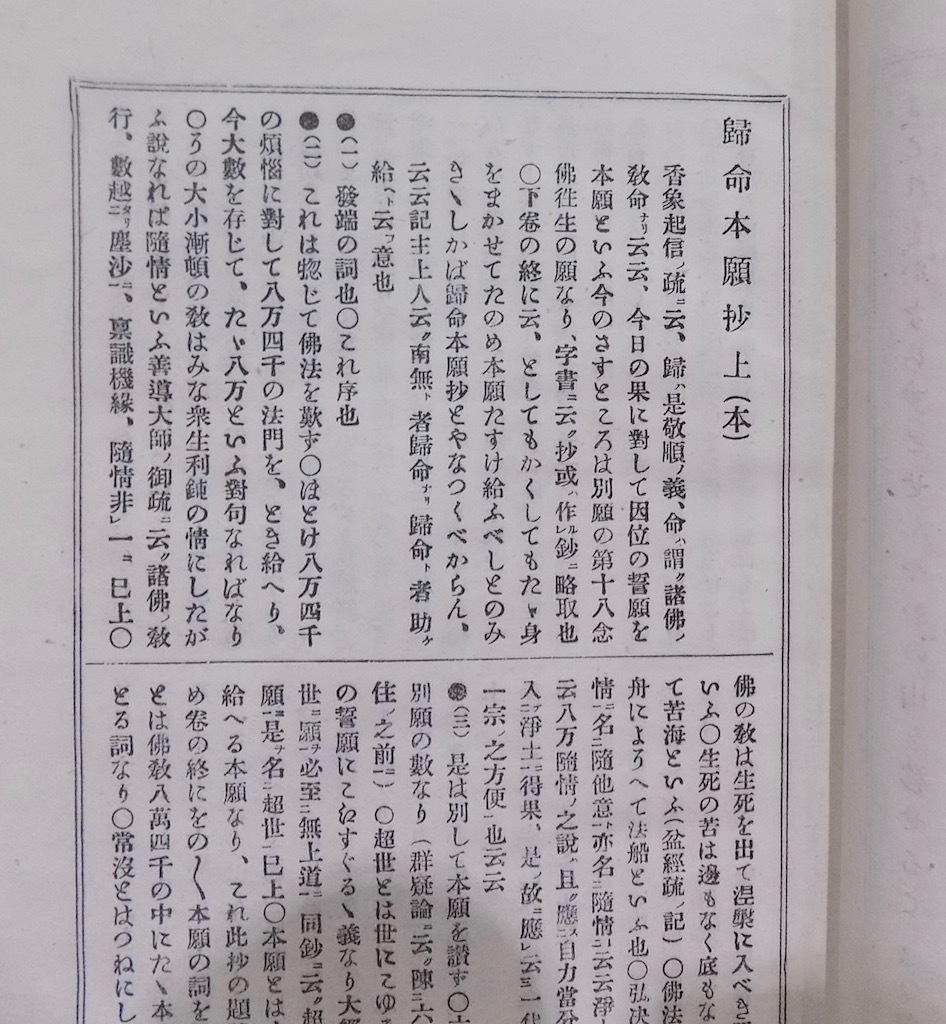 歸命本願抄上(本)
香象起信ノ疏ニ云、歸ハ是敬順ノ義、命ハ謂ク諸佛ノ
敎命ナリ云云、今日の果に對して因位の誓願を
本願といふ今のさすところは別願の第十八念
佛徃生の願なり、字書ニ云ク抄或ハ作ル鈔ニ略取也
〇下卷の終に云、としてもかくしてもたゞ身
をまかせてたのめ本願たすけ給ふべしとのみ
きゝしかば歸命本願抄とやなつくべからん、
云云記主上人云ク南無ト者歸命ナリ歸命ト者助ケ
給ヘト云フ意也
●(一)發端の詞也〇これ序也
●(二)これは惣じて佛法を歎ず〇ほとけ八万四千
の煩惱に對して八万四千の法門を、とき給へり、
今大數を存じて、たゞ八万といふ對句なればなり
〇うの大小漸頓の敎はみな衆生利鈍の情にしたが
ふ說なれば隨情といふ善導大師ノ御疏ニ云ク諸佛ノ敎
行、數越タリ二塵沙一ニ、稟識機緣、隨情非レ一ニ已上〇
佛の敎は生死を出て涅槃に入べき
いふ〇生死の苦は邊もなく底もな
て苦海といふ(盆經疏ノ記)〇佛法
舟にようへて法船といふ也〇弘决
情ニ名二隨他意一ト亦名二隨情一ト云云淨
云八万隨情ノ之說ハ且ク應ス二自力當分
入テ二淨土一ニ得果、是ノ故ニ應レ云三一代
一宗ノ之方便一也云云
●(三)是は別して本願を讃ず〇
別願の數なり(群疑論ニ云ク陳二六
住ノ之前一ニ)〇超世とは世にこゆ
の誓願にこねすぐるゝ義なり大
世ニ願ヲ一必至二無上道一ニ同鈔ニ云ク超
願一ヲ是ヲ名二超世一ト已上〇本願とは
給へる本願なり、これ此抄の題
め卷の終にをの〱本願の詞を
とは佛敎八萬四千の中にたゝ本
とる詞なり〇常沒とはつねにし